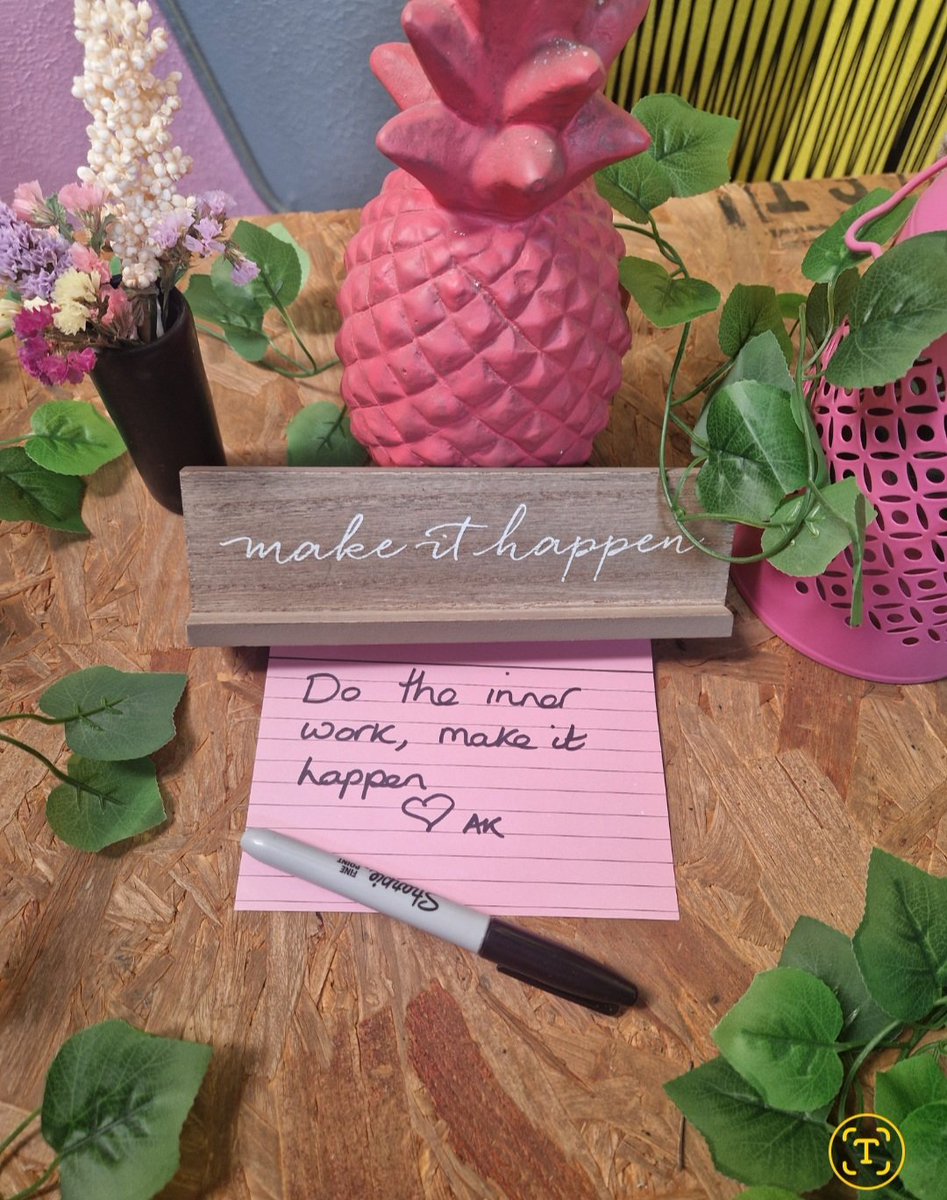 make it happen
Do the inner
work, make it
happen
♡ AK
Sharpie
FINE
POINT